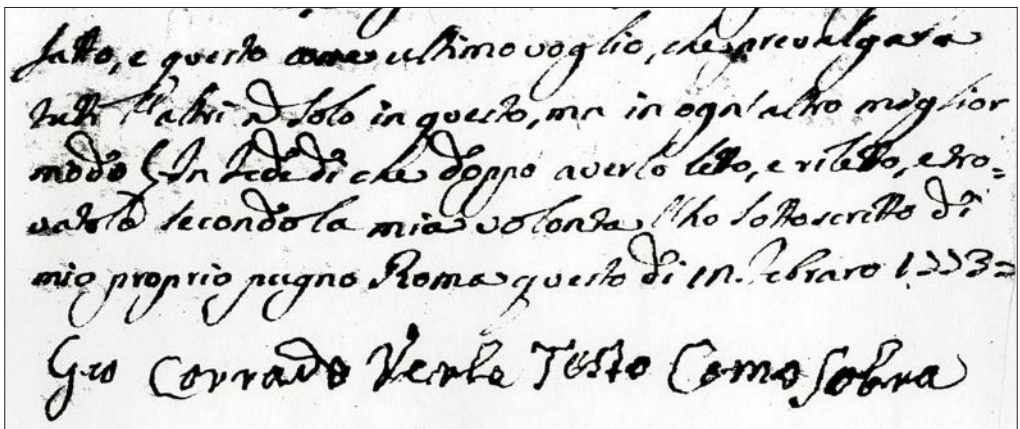 fatto, e questo come ultimo voglio, che prevalga a
tutti gl'altri nõ solo in questo, ma in ogn'altro miglior
modo In fede di che doppo averlo letto, e riletto, e tro=
vatolo secondo la mia volonta l'ho sottoscritto di
mio proprio pugno Roma questo di Febraro 1773=
Gio Corrado Verle Testo Como Sobra